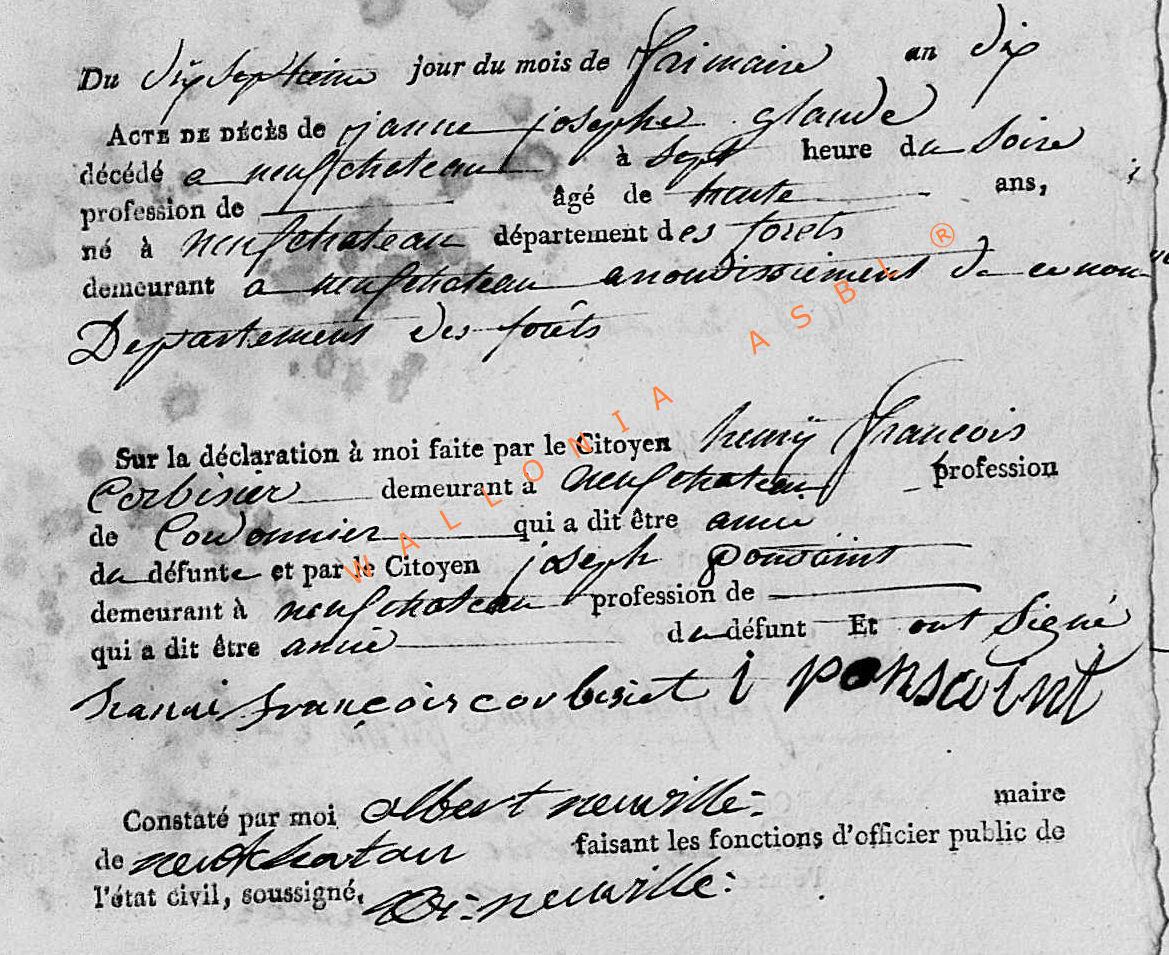 Du dix septieme jour du mois de frimaire an dix
ACTE DE DÉCÈS de janne josephe glaude
décédé a neufchateau à sept heure du soire
profession de âgé de trante ans,
né à neufchateau département des forets
demeurant a neufchateau
Departement des forêts
Sur la déclaration à moi faite par le Citoyen henrÿ françois
Corbisier demeurant à neufchateau profession
de Cordonnier qui a dit être amie
du défunte et par le Citoyen joseph ponsaint
demeurant à neufchateau profession de
qui a dit être amie du défunt Et ont Signé
françois corbisiet i ponsaint
Constaté par moi albert neuville maire
de neufchatau faisant les fonctions d'officier public de
l'état civil, soussigné, neuville
WALLONIA ASBL ®